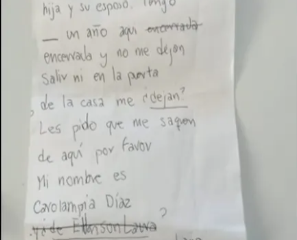 hija y su esposo. Tengo
— un año aqui encerrada
encerrada y no me dejan
Salir ni en la puerta
de la casa me ¿dejan?
Les pido que me saquen
de aquí por favor
Mi nombre es
Carolampia Díaz
?